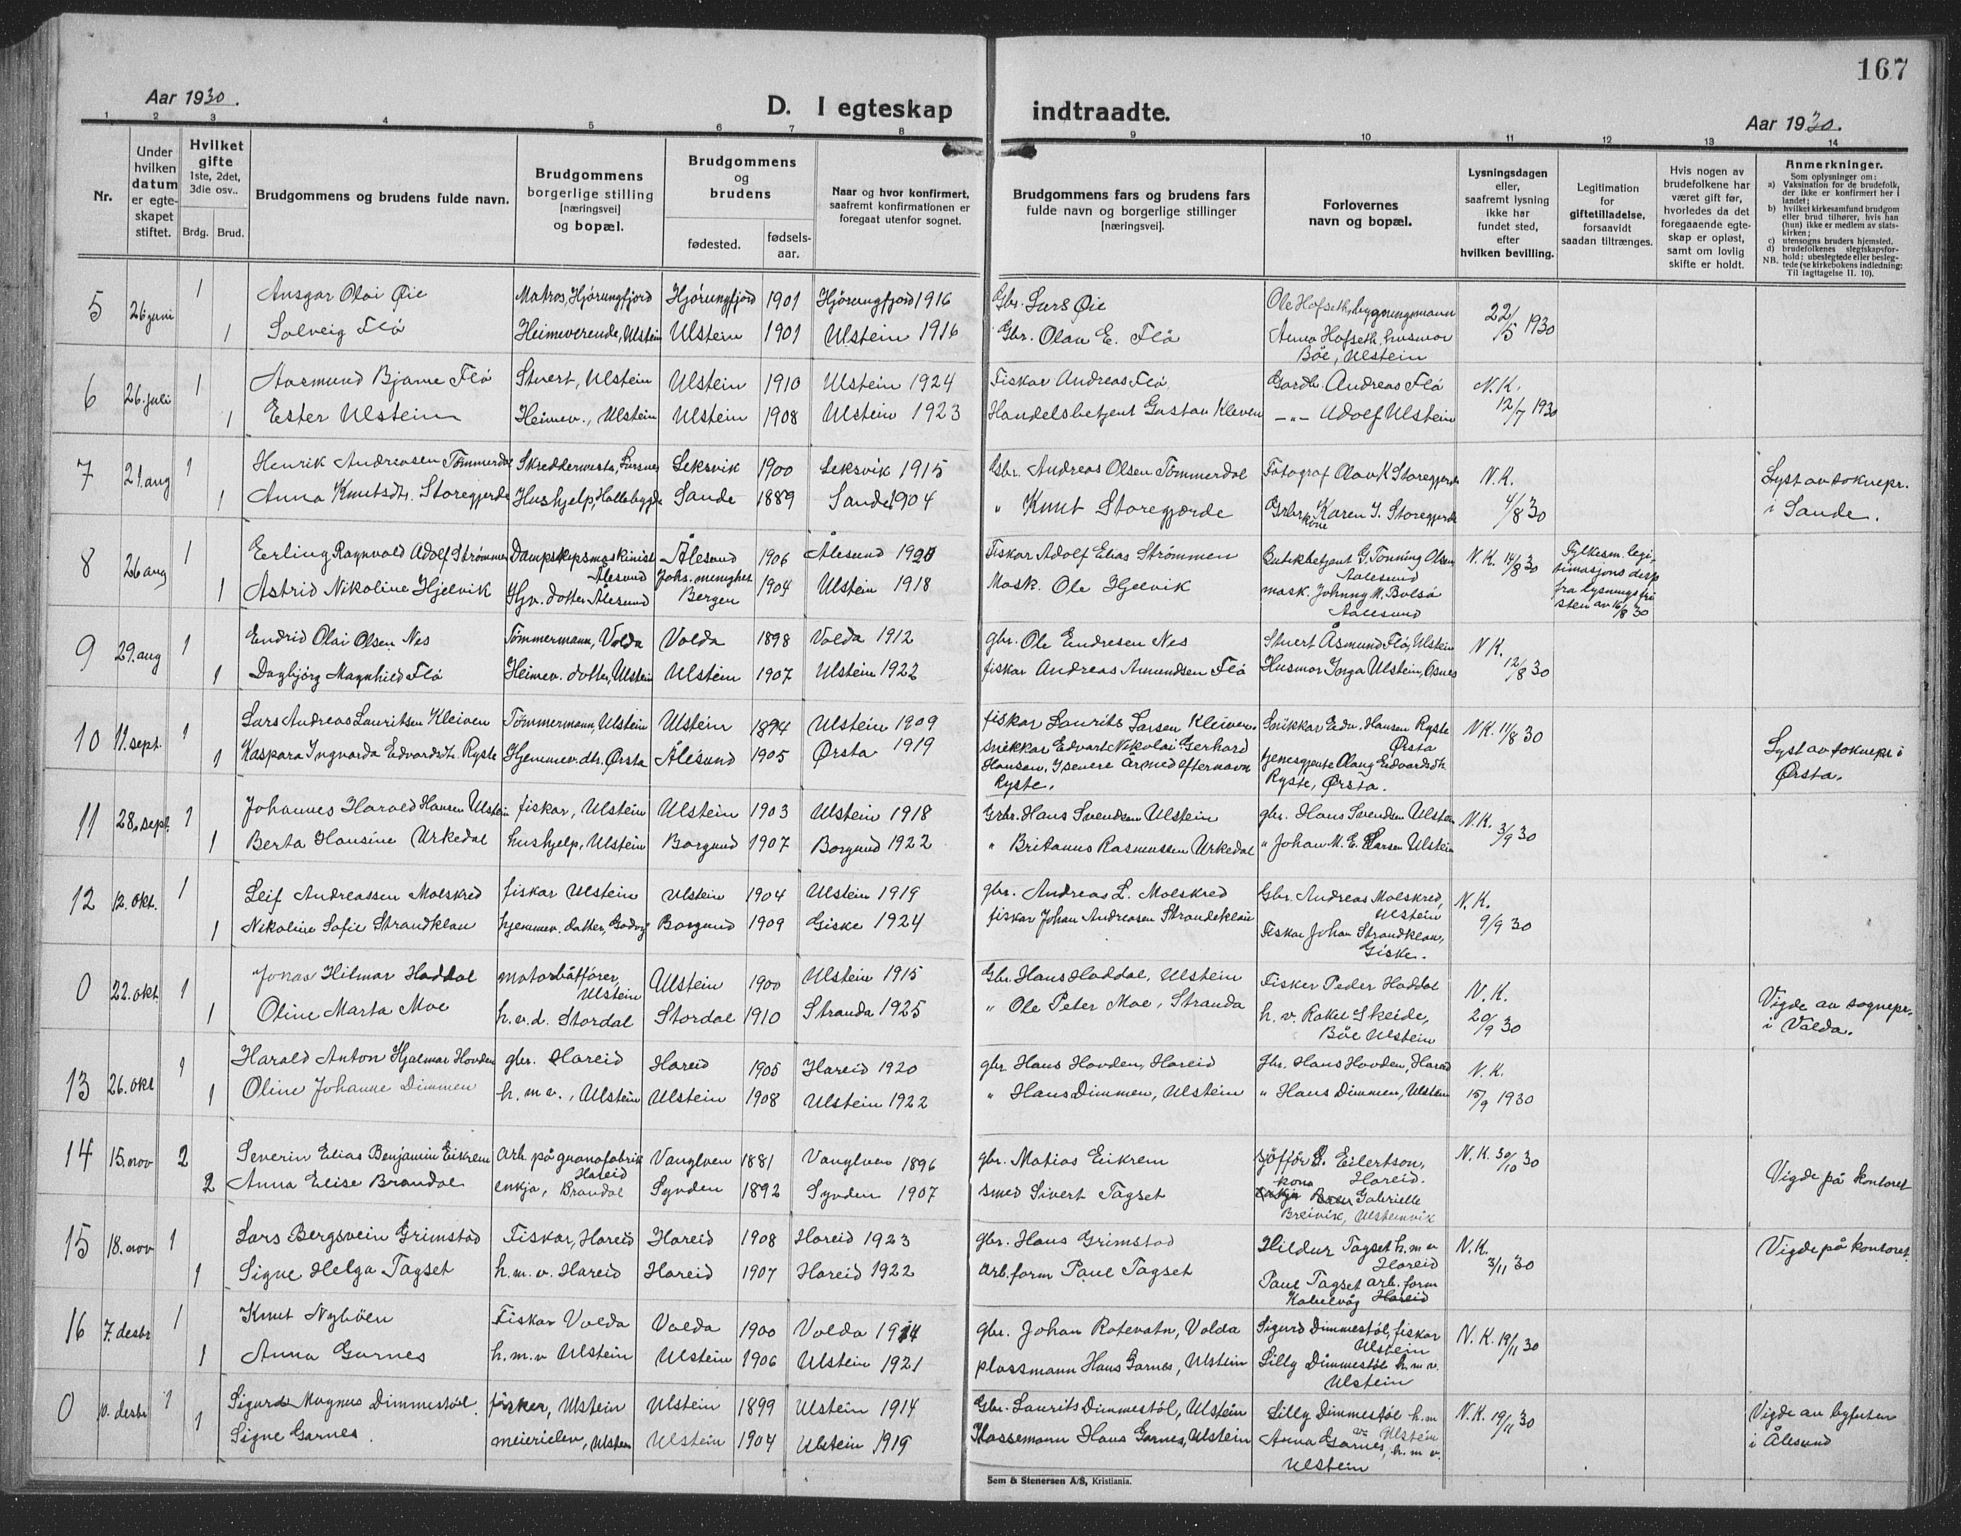 167
Aar 1930.
D. I egteskap indtraadte.
Aar 1930.
1 2 3 4 5 6 7 8 9 10 11 12 13 14
Nr.
Under hvilken datum er egteskapet stiftet.
Hvilket gifte 1ste, 2det, 3die osv..
Brdg. Brud.
Brudgommens og brudens fulde navn.
Brudgommens borgerlige stilling [næringsvei] og bopæl.
Brudgommens og brudens
fødested. fødsels-aar.
Naar og hvor konfirmert, saafremt konfirmationen er foregaat utenfor sognet.
Brudgommens fars og brudens fars fulde navn og borgerlige stillinger [næringsvei].
Forlovernes navn og bopæl.
Lysningsdagen eller, saafremt lysning ikke har fundet sted, efter hvilken bevilling.
Legitimation for giftetilladelse, forsaavidt saadan tiltrænges.
Hvis nogen av brudefolkene har været gift før, hvorledes da det foregaaende egteskap er opløst, samt om lovlig skifte er holdt.
Anmerkninger.
Som oplysninger om:
a) Vaksination for de brudefolk, der ikke er konfirmert her i landet;
b) hvilket kirkesamfund brudgom eller brud tilhører, hvis han (hun) ikke er medlem av statskirken;
c) utensogns bruders hjemsted.
d) brudefolkenes slegtskapsforhold: ubeslegtede eller beslegtede (se kirkebokens indledning:
NB. Til iagttagelse II. 10).
5 26 juni 1 Ansgar Olai Øie Matros, Hjørungfjord Hjørungfjord 1901 Hjørungfjord 1916 Gbr. Lars Øie Ole Hofseth, bygningsmann 22/5 1930
1 Solveig Flø Heimeverende, Ulstein Ulstein 1901 Ulstein 1916 Gbr. Olau E. Flø Anna Hofseth, husmor
Bøe, Ulstein
6 26. juli 1 Aasmund Bjarne Flø Stuert, Ulstein Ulstein 1910 Ulstein 1924 Fiskar Andreas Flø Gardbr. Andreas Flø N.K.
1 Ester Ulstein Heimev., Ulstein Ulstein 1908 Ulstein 1923 Handelsbetjent Gustav Kleven —"— Adolf Ulstein 12/7 1930
7 21. aug 1 Henrik Andreasen Tømmerdal Skreddermester, Leksvik 1900 Leksvik 1915 Gbr. Andreas Olsen Tømmerdal Fotograf Olav K Storegjerde N.K. Lyst av soknepr.
1 Anna Knutsdtr. Storegjerde Hushjelp, Hallebygda Sande 1889 Sande 1904 " Knut Storegjerde Grbr kone Karen J. Storegjerde 4/8 30 i Sande.
8 26 aug 1 Erling Ragnvald Adolf Strømmen Dampskipsmaskinist Ålesund Ålesund 1906 Ålesund 1920 Fiskar Adolf Elias Strømmen Butikbetjent G. Tonning Olsen Aalesund N.K. 14/8 30 Fylkesm. legitimasjons disp fra lysningsfristen av 16/8 30
1 Astrid Nikoline Hjelvik Hjv. dotter Ålesund Johs. menighet Bergen 1904 Ulstein 1918 Mask. Ole Hjelvik mask. Johnny M. Bolsø Aalesund
9 29. aug 1 Endrid Olai Olsen Nes Tømmermann, Volda Volda 1898 Volda 1912 gbr. Ole Endresen Nes Stuert Åsmund Flø, Ulstein N.K.
1 Dagbjørg Magnhild Flø Heimev. dotter, Ulstein Ulstein 1907 Ulstein 1922 fiskar Andreas Amundsen Flø Husmor Inga Ulstein, Osnes 12/8 30
10 11. sept. 1 Lars Andreas Lauritsen Kleiven Tømmermann, Ulstein Ulstein 1894 Ulstein 1909 fiskar Laurits Larsen Kleiven. Snikkar Edv. Hansen Ryste Ørsta N.K. 11/8 30 Lyst av soknepr. i Ørsta.
1 Kaspara Ingvarda Edvardsdt. Ryste Hjemmev. dtr. Ørsta Ålesund 1905 Ørsta 1919 snikkar Edvart Nikolai Gerhard Hansen, Ryste. Olaug Edvardsdtr. Ryste, Ørsta.
11 28. sept. 1 Johannes Harald Hansen Ulstein fiskar, Ulstein Ulstein 1903 Ulstein 1918 Grbr. Hans Svendsen Ulstein gbr. Hans Svendsen Ulstein N.K. 3/9 30
1 Berta Hansine Urkedal hushjelp, Ulstein Borgund 1907 Borgund 1922 " Britanus Rasmussen Urkedal " Johan M. E. Larsen Ulstein
12 12. okt. 1 Leif Andreassen Molskred fiskar Ulstein Ulstein 1904 Ulstein 1919 gbr. Andreas L. Molskred Gbr. Andreas Molskred, Ulstein N.K.
1 Nikoline Sofie Strandklau hjemmev. datter, Godøy Borgund 1909 Giske 1924 fiskar Johan Andreasen Strandeklau Fiskar Johan Strandklau, Giske. 9/9 30
0 22. okt 1 Jonas Hilmar Haddal motorbåtfører, Ulstein Ulstein 1900 Ulstein 1915 Gbr. Hans Haddal, Ulstein Fisker Peder Haddal N.K. Vigde av sognepr.
1 Oline Marta Moe h.v.d. Stordal Stordal 1910 Stranda 1925 " Ole Peter Moe, Stranda h.v. Rakel Skeide, Bøe Ulstein 20/9 30 i Volda.
13 26. okt 1 Harald Anton Hjalmar Hovden gbr. Hareid Hareid 1905 Hareid 1920 gbr. Hans Hovden, Hareid Gbr. Hans Hovden, Hareid N.K.
1 Oline Johanne Dimmen h.m.v., Ulstein Ulstein 1908 Ulstein 1922 " Hans Dimmen, Ulstein " Hans Dimmen, Ulstein 15/9 1930
14 15. nov 2 Severin Elias Benjamin Eikrem arb. på guanofabrik Hareid Vanylven 1881 Vanylven 1896 gbr. Matias Eikrem sjåffør Eilertson, Hareid. N.K. 30/10 30 Vigde på kontoret
2 Anna Elise Brandal enkja, Brandal Syvden 1892 Syvden 1907 smed Sivert Tagset kona Gabrielle Breivik, Ulsteinvik
15 18. nov 1 Lars Bergsvein Grimstad Fiskar, Hareid Hareid 1908 Hareid 1923 gbr. Hans Grimstad Hildur Tagset h.m.v Hareid N.K. 3/11 30 Vigde på kontoret.
1 Signe Helga Tagset h.m.v. Hareid Hareid 1907 Hareid 1922 arb.form Paul Tagset Paul Tagset arb.form Hareid
16 7. desbr 1 Knut Nybøen Fiskar Volda Volda 1900 Volda 1914 gbr. Johan Rotevatn, Volda Sigurd Dimmestøl, fiskar Ulstein N.K. 19/11 30
1 Anna Garnes h.m.v Ulstein Ulstein 1906 Ulstein 1921 plassmann Hans Garnes, Ulstein Lilly Dimmestøl h.m.v. Ulstein
0 desbr 1 Sigurd Magnus Dimmestøl fisker, Ulstein Ulstein 1899 Ulstein 1914 Gbr. Laurits Dimmestøl, Ulstein Lilly Dimmestøl h.m v Ulstein N.K. 19/11 30 Vigde av byfuten
1 Signe Garnes. meierielev, Ulstein Ulstein 1904 Ulstein 1919 Plassemann Hans Garnes, Ulstein Anna Garnes, h.m.v. Ulstein i Ålesund
Sem & Stenersen A/S, Kristiania.